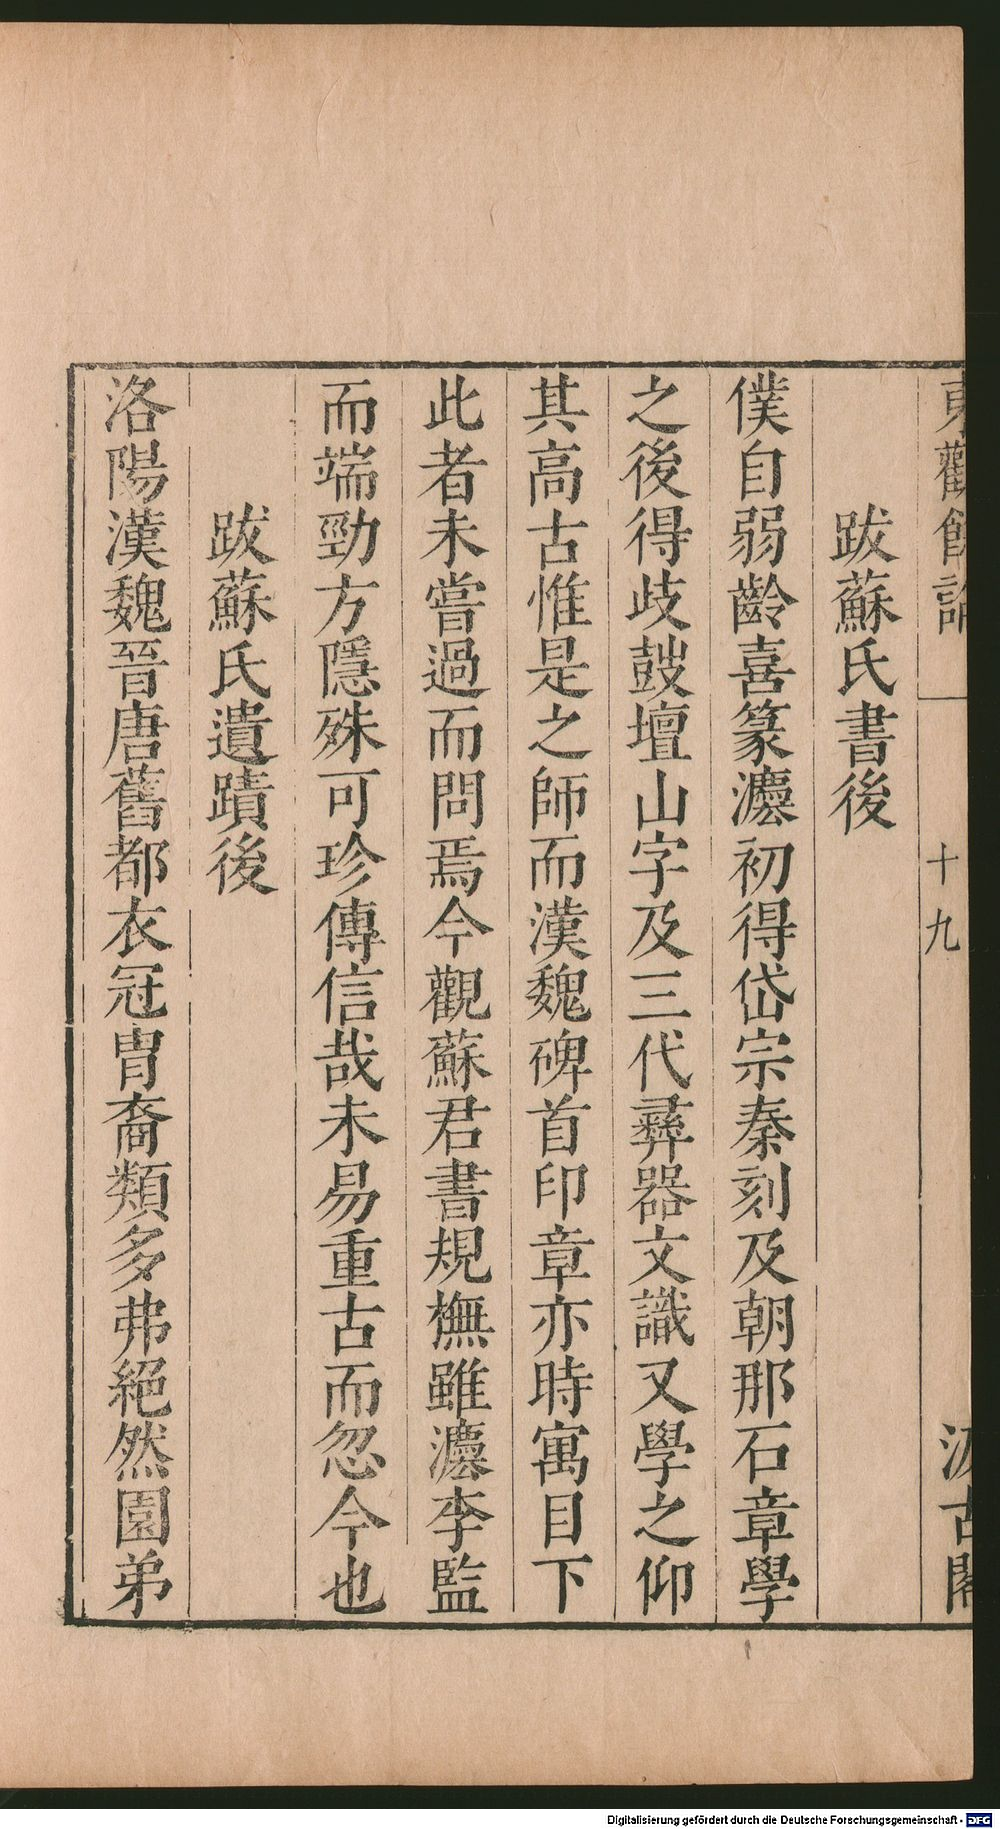 東觀餘論
十九
汲古閣
跋蘇氏書後
僕自弱齡喜篆灋初得岱宗秦刻及朝那石章學
之後得歧鼓壇山字及三代彝器文識又學之仰
其高古惟是之師而漢魏碑首印章亦時寓目下
此者未嘗過而問焉今觀蘇君書規橅雖灋李監
而端勁方隱殊可珍傳信哉未易重古而忽今也
跋蘇氏遺蹟後
洛陽漢魏晉唐舊都衣冠胄裔類多弗絕然園弟
Digitalisierung gefördert durch die Deutsche Forschungsgemeinschaft - DFG